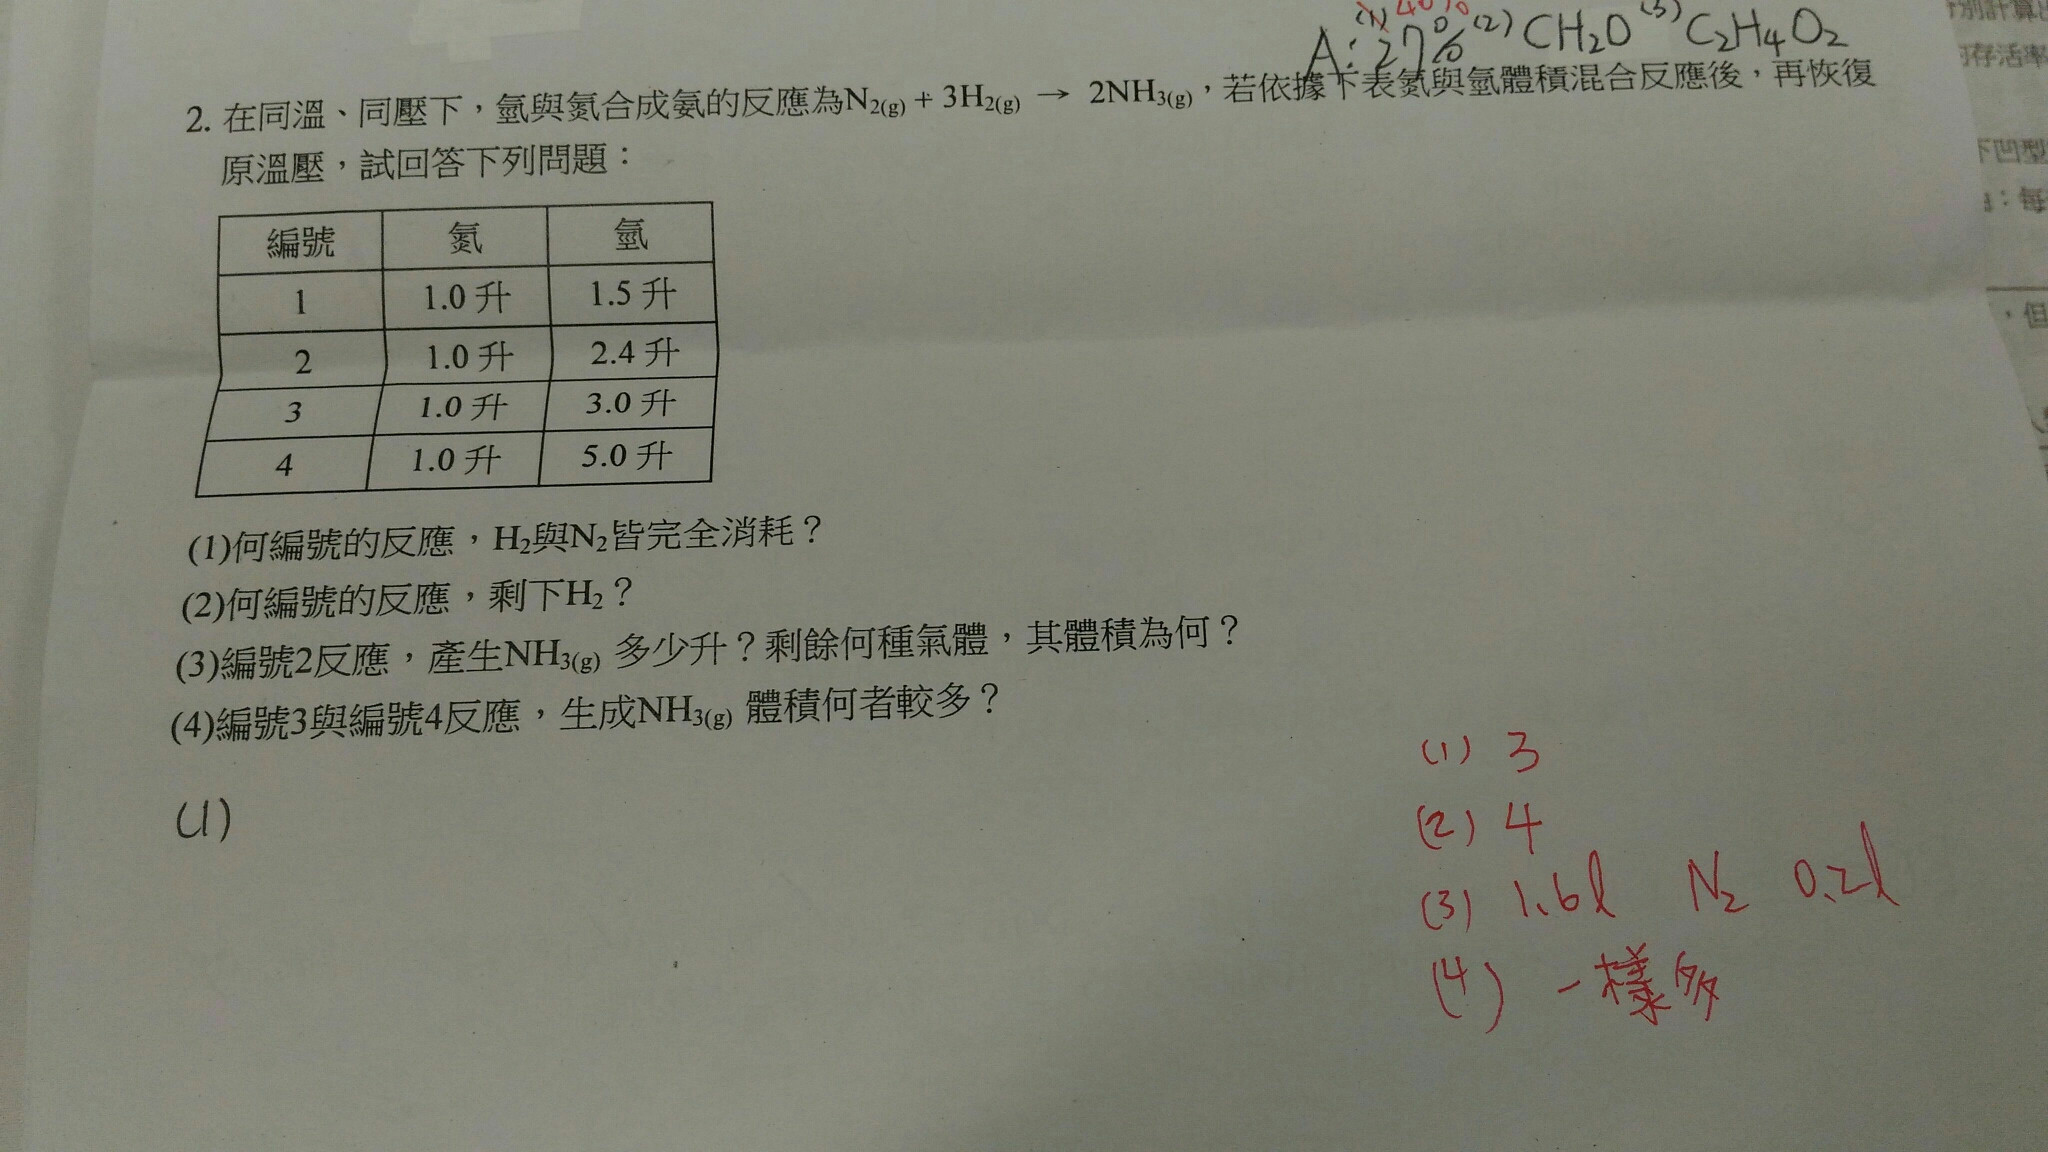 A: (1) 27% (2) CH₂O (3) C₂H₄O₂
2. 在同溫、同壓下，氫與氮合成氨的反應為N₂(g) + 3H₂(g) → 2NH₃(g)，若依據下表氮與氫體積混合反應後，再恢復
原溫壓，試回答下列問題：
編號 氮 氫
1 1.0 升 1.5 升
2 1.0 升 2.4 升
3 1.0 升 3.0 升
4 1.0 升 5.0 升
(1)何編號的反應，H₂與N₂皆完全消耗？
(2)何編號的反應，剩下H₂？
(3)編號2反應，產生NH₃(g) 多少升？剩餘何種氣體，其體積為何？
(4)編號3與編號4反應，生成NH₃(g) 體積何者較多？
(1)
(1) 3
(2) 4
(3) 1.6l N₂ 0.2l
(4) 一樣多
存活率
下凹型
：每
，但